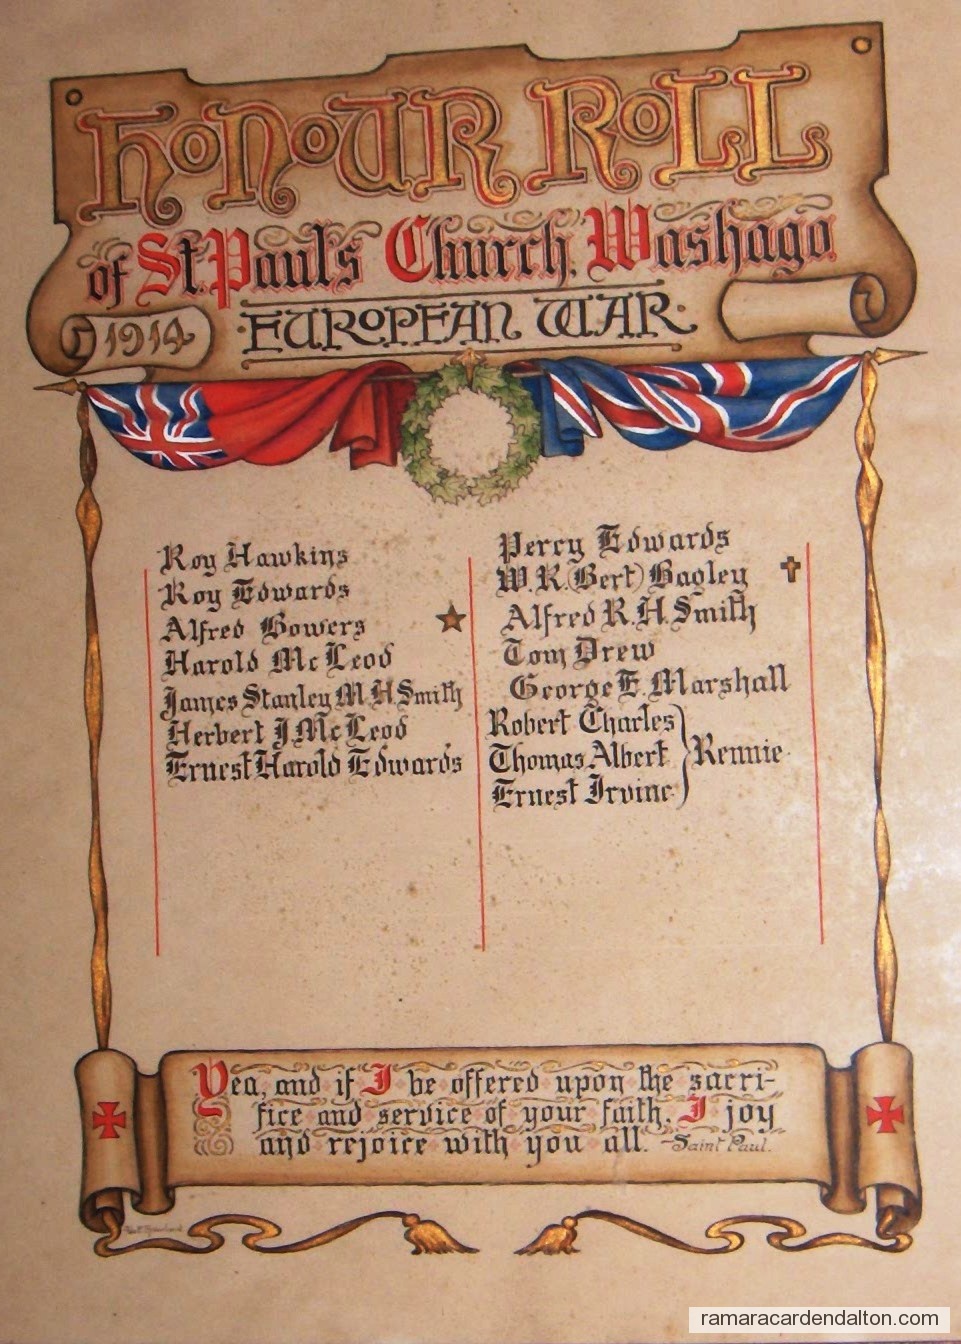 HONOUR ROLL
of St. Paul's Church, Washago.
1914
·EUROPEAN WAR·
Roy Hawkins
Roy Edwards
Alfred Bowers
Harold McLeod
James Stanley M. H. Smith
Herbert J. McLeod
Ernest Harold Edwards
Percy Edwards
W. R. (Bert) Bagley
Alfred R. H. Smith
Tom Drew
George E. Marshall
Robert Charles
Thomas Albert Rennie
Ernest Irvine
Yea, and if I be offered upon the sacri-
fice and service of your faith, I joy
and rejoice with you all. -Saint Paul.
ramaracardendalton.com